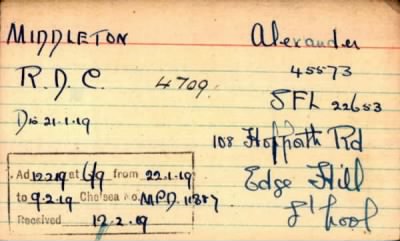 MIDDLETON Alexander
R.D.C. 4709. 45573
SFL 22653
Dis 21.1.19
108 Hopforth Rd
Edge Hill
L'pool
Ad 12.2.19 at 6/9 from 22.1.19
to 9.2.19 Chelsea No. MPD. 11887
Received 12.2.19